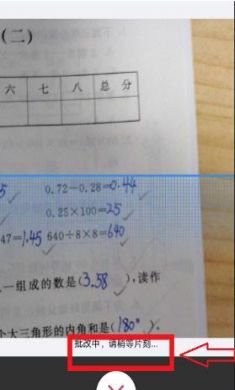 (二)
六 七 八 总 分
5 0.72-0.28=0.44
0.25×100=25
47=1.45 640÷8×8=640
一组成的数是(3.58),读作
个大三角形的内角和是(180°).
批改中，请稍等片刻...